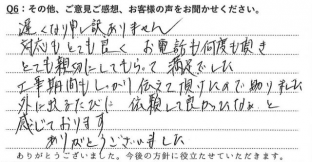 Q6：その他、ご意見ご感想、お客様の声をお聞かせください。
遅くなり申し訳ありません
対応もとても良く お電話も何度も頂き
とても親切にしてもらって 満足でした
工事期間もしっかり伝えて頂けたので助かりました
外に出るたびに 依頼して良かったなぁ と
感じております
ありがとうございました
ありがとうございました。今後の方針に役立たせていただきます。